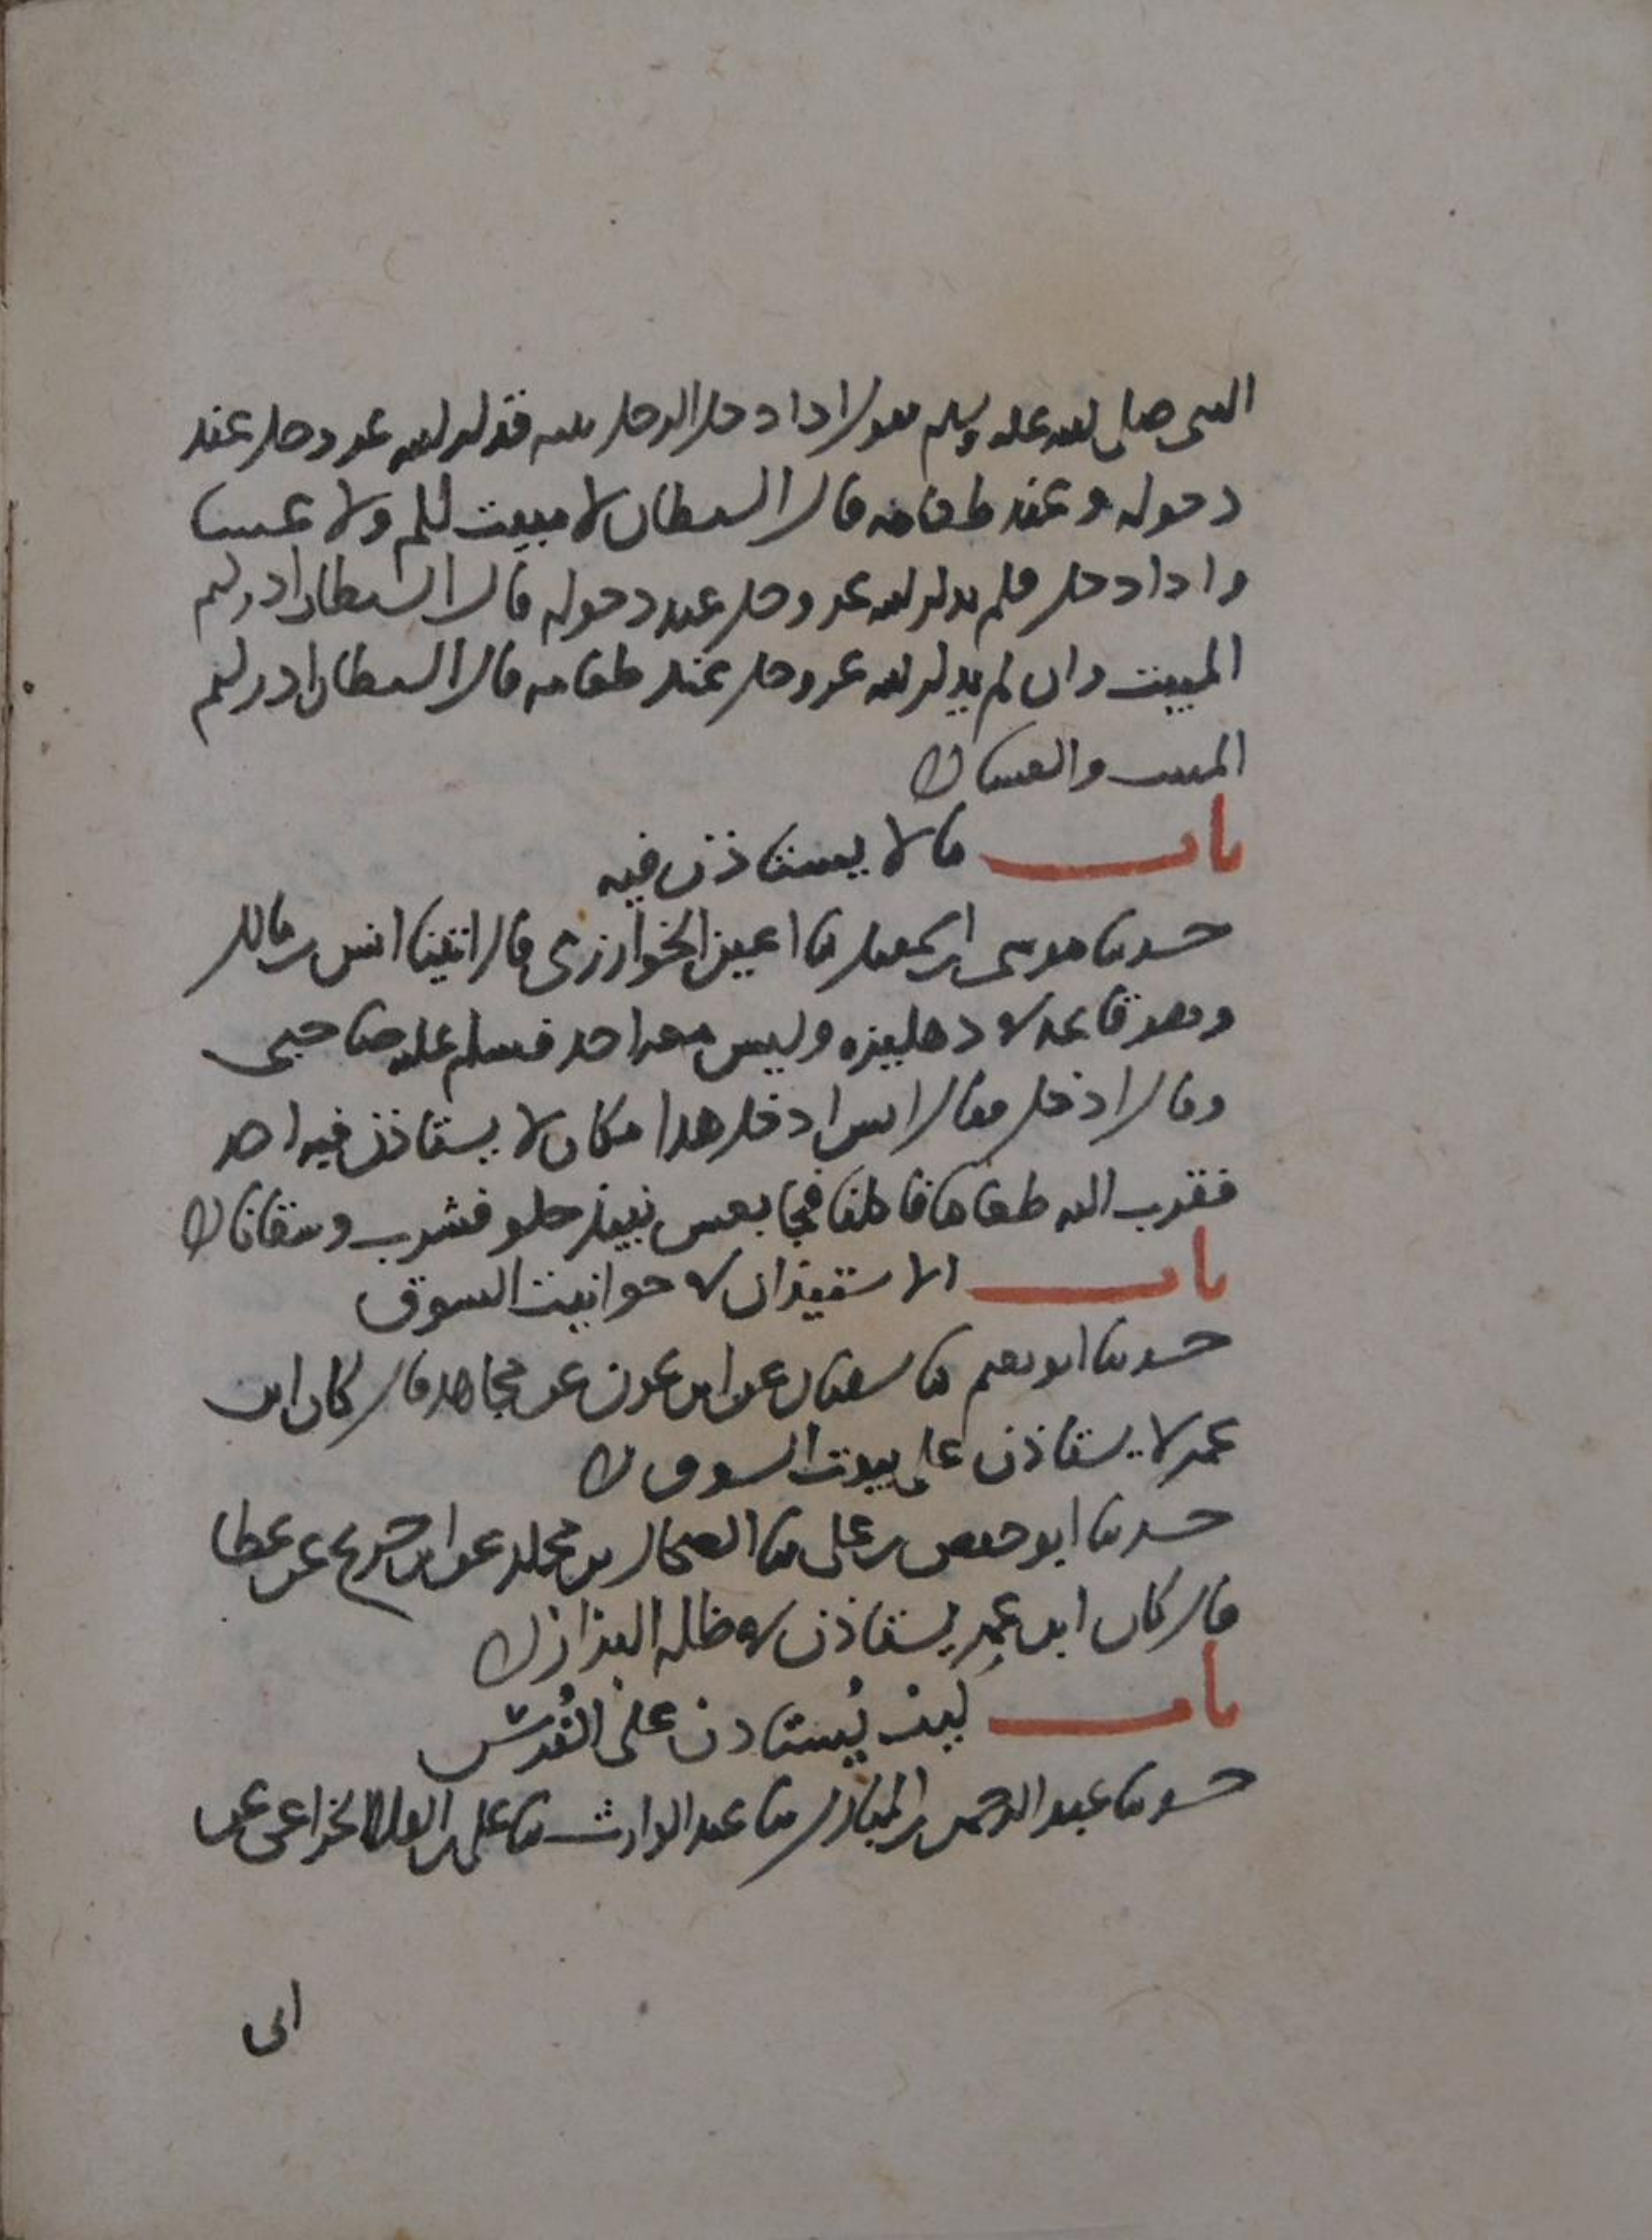 النبي صلى الله عليه وسلم يقول اذا دخل الرجل بيته فذكر الله عز وجل عند
دخوله وعند طعامه قال الشيطان لا مبيت لكم ولا عشا
واذا دخل فلم يذكر الله عز وجل عند دخوله قال الشيطان ادركتم
المبيت وان لم يذكر الله عز وجل عند طعامه قال الشيطان ادركتم
المبيت والعشا
باب ما لا يستاذن فيه
حدثنا موسى بن اسمعيل ثنا اعين الخوارزمي قال اتينا انس بن مالك
وهو قاعد في دهليزه وليس معه احد فسلم عليه صاحبي
وقال ادخل فقال انس ادخل هذا مكان لا يستاذن فيه احد
فقرب الينا طعاما فاكلنا فجا بعس نبيذ حلو فشرب وسقانا
باب الاستيذان في حوانيت السوق
حدثنا ابو نعيم ثنا سفيان عن ابن عون عن مجاهد قال كان ابن
عمر لا يستاذن على بيوت السوق
حدثنا ابو حفص بن علي ثنا الضحاك بن مخلد عن ابن جريج عن عطا
قال كان ابن عمر يستاذن في ظلة البزاز
باب كيف يستاذن على الفرس
حدثنا عبد الرحمن بن المبارك ثنا عبد الوارث ثنا علي بن العلا الخزاعي عن
ابي